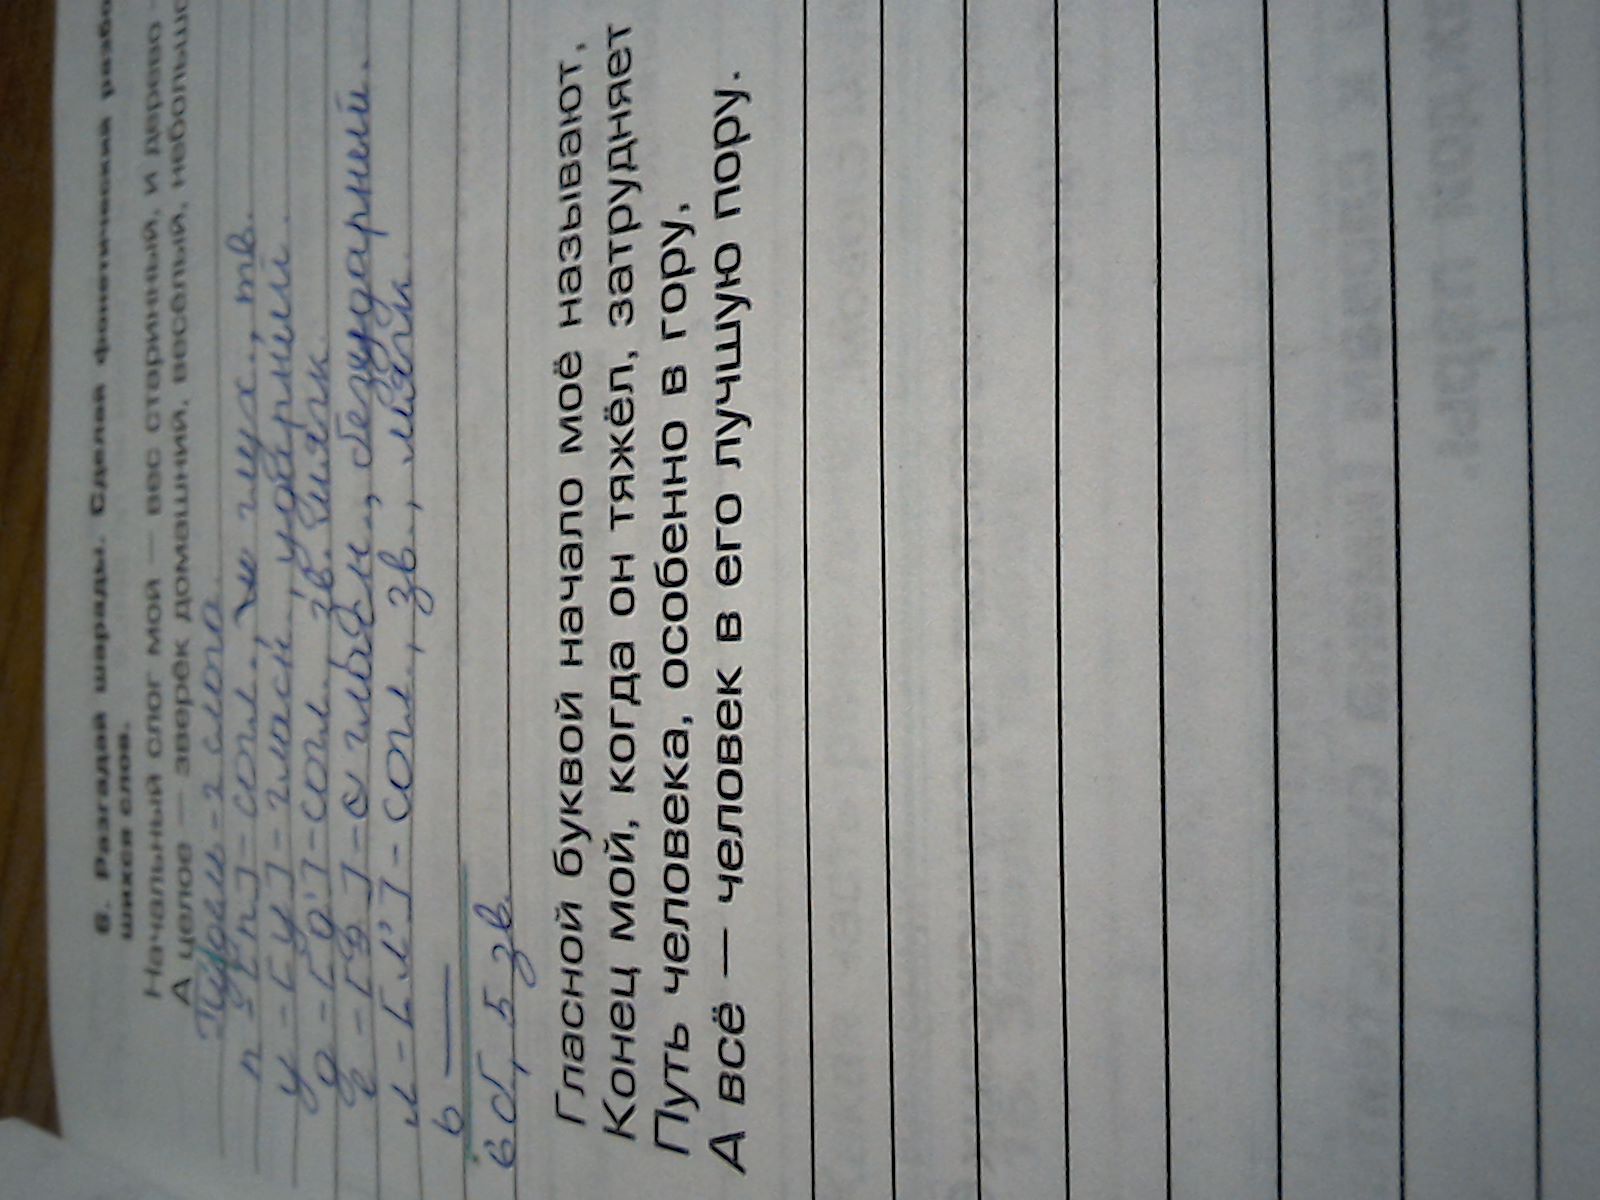 6. Разгадай шарады. Сделай фонетический разбо
шихся слов.
Начальный слог мой — вес старинный, и дерево
А целое — зверёк домашний, весёлый, небольшо
Пудель - 2 слога.
п - [п] - согл., глух., тв.
у - [у] - гласн., ударный.
д - [д'] - согл., зв., мягк.
е - [э] - гласн., безударный.
л - [л'] - согл., зв., мягк.
ь —
6 б, 5 зв.
Гласной буквой начало моё называют,
Конец мой, когда он тяжёл, затрудняет
Путь человека, особенно в гору,
А всё — человек в его лучшую пору.